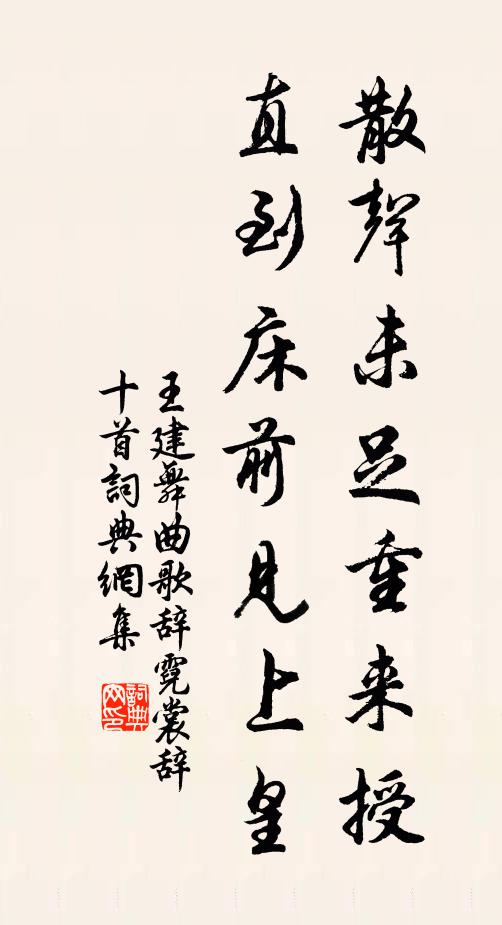 散聲未足重来授
直到床前見上皇
王建舞曲歌辞霓裳辞
十首詞典網集
詞典网印